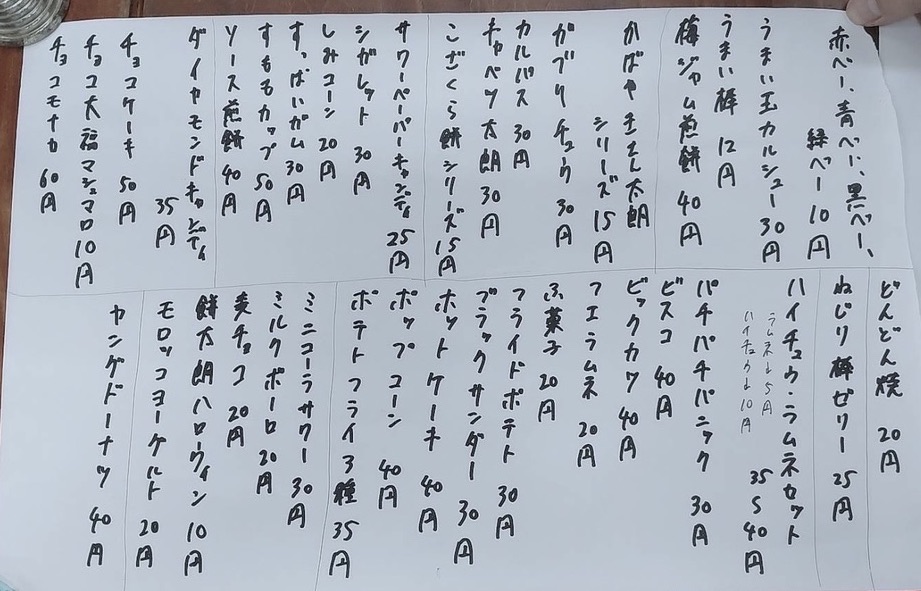 赤べー、青べー、黒べー、
緑べー 10円
うまい玉カルシュー 30円
うまい棒 12円
梅ジャム煎餅 40円
かばや 玉さん太郎
シリーズ 15円
ガブリチュウ 30円
カルパス 30円
キャベツ太郎 30円
こざくら餅シリーズ 15円
サワーペーパーキャンディ 25円
シガレット 30円
しみコーン 20円
すっぱいガム 30円
すももカップ 50円
ソース煎餅 40円
ダイヤモンドキャンディ
35円
チョコケーキ 50円
チョコ大福マシュマロ 10円
チョコモナカ 60円
どんどん焼 20円
ねじり棒ゼリー 25円
ハイチュウ・ラムネセット
ラムネ↓5円
ハイチュウ↓10円
35
S
40円
パチパチパニック 30円
ビスコ 40円
ビックカツ 40円
フエラムネ 20円
ふ菓子 20円
フライドポテト 30円
ブラックサンダー 30円
ホットケーキ 40円
ポップコーン 40円
ポテトフライ3種 35円
ミニコーラサワー 30円
ミルクボーロ 20円
麦チョコ 20円
餅太郎ハローウィン 10円
モロッコヨーグルト 20円
ヤングドーナツ 40円